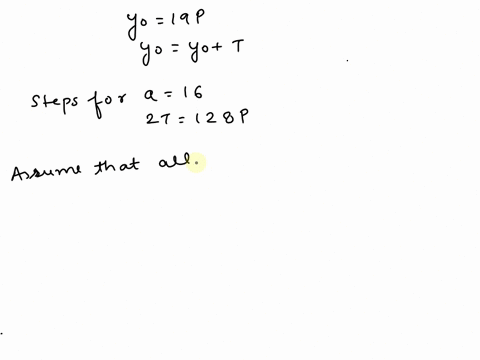 yo = 19P
yo = yo + T
Steps for a = 16
2T = 128P
Assume that all.